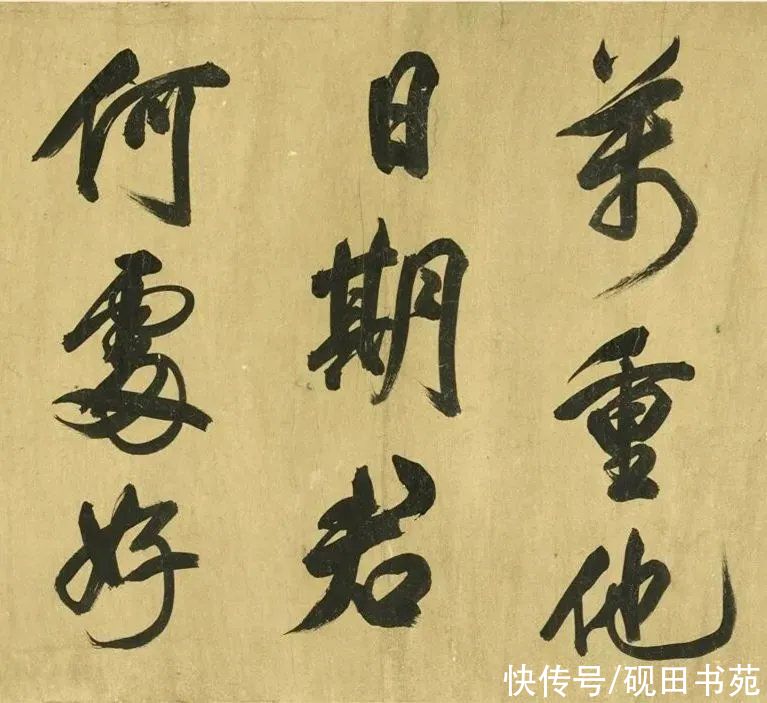 萬重他
日期君
何處好
快传号/砚田书苑